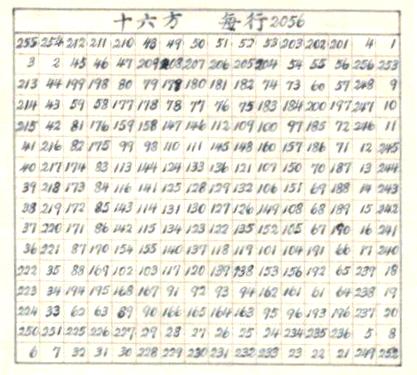 十六方 每行2056
255 254 212 211 210 48 49 50 51 52 53 203 202 201 4 1
3 2 45 46 47 209 208 207 206 205 204 54 55 56 256 253
213 44 199 198 80 79 179 180 181 182 74 73 60 57 248 9
214 43 59 58 177 178 78 77 76 75 183 184 200 197 247 10
215 42 81 176 159 158 147 146 112 109 100 97 185 72 246 11
41 216 82 175 99 98 110 111 145 148 160 157 186 71 12 245
40 217 174 83 113 144 124 133 136 121 107 150 70 187 13 244
39 218 173 84 116 141 125 128 129 132 106 151 69 188 14 243
38 219 172 85 143 114 131 130 127 126 149 108 68 189 15 242
37 220 171 86 142 115 134 123 122 135 152 105 67 190 16 241
36 221 87 170 154 155 140 137 118 119 101 104 191 66 17 240
222 35 88 169 102 103 117 120 139 138 153 156 192 65 239 18
223 34 194 195 168 167 91 92 93 94 162 161 61 64 238 19
224 33 62 63 89 90 166 165 164 163 95 96 193 196 237 20
250 251 225 226 227 29 28 27 26 25 24 234 235 236 5 8
6 7 32 31 30 228 229 230 231 232 233 23 22 21 249 252